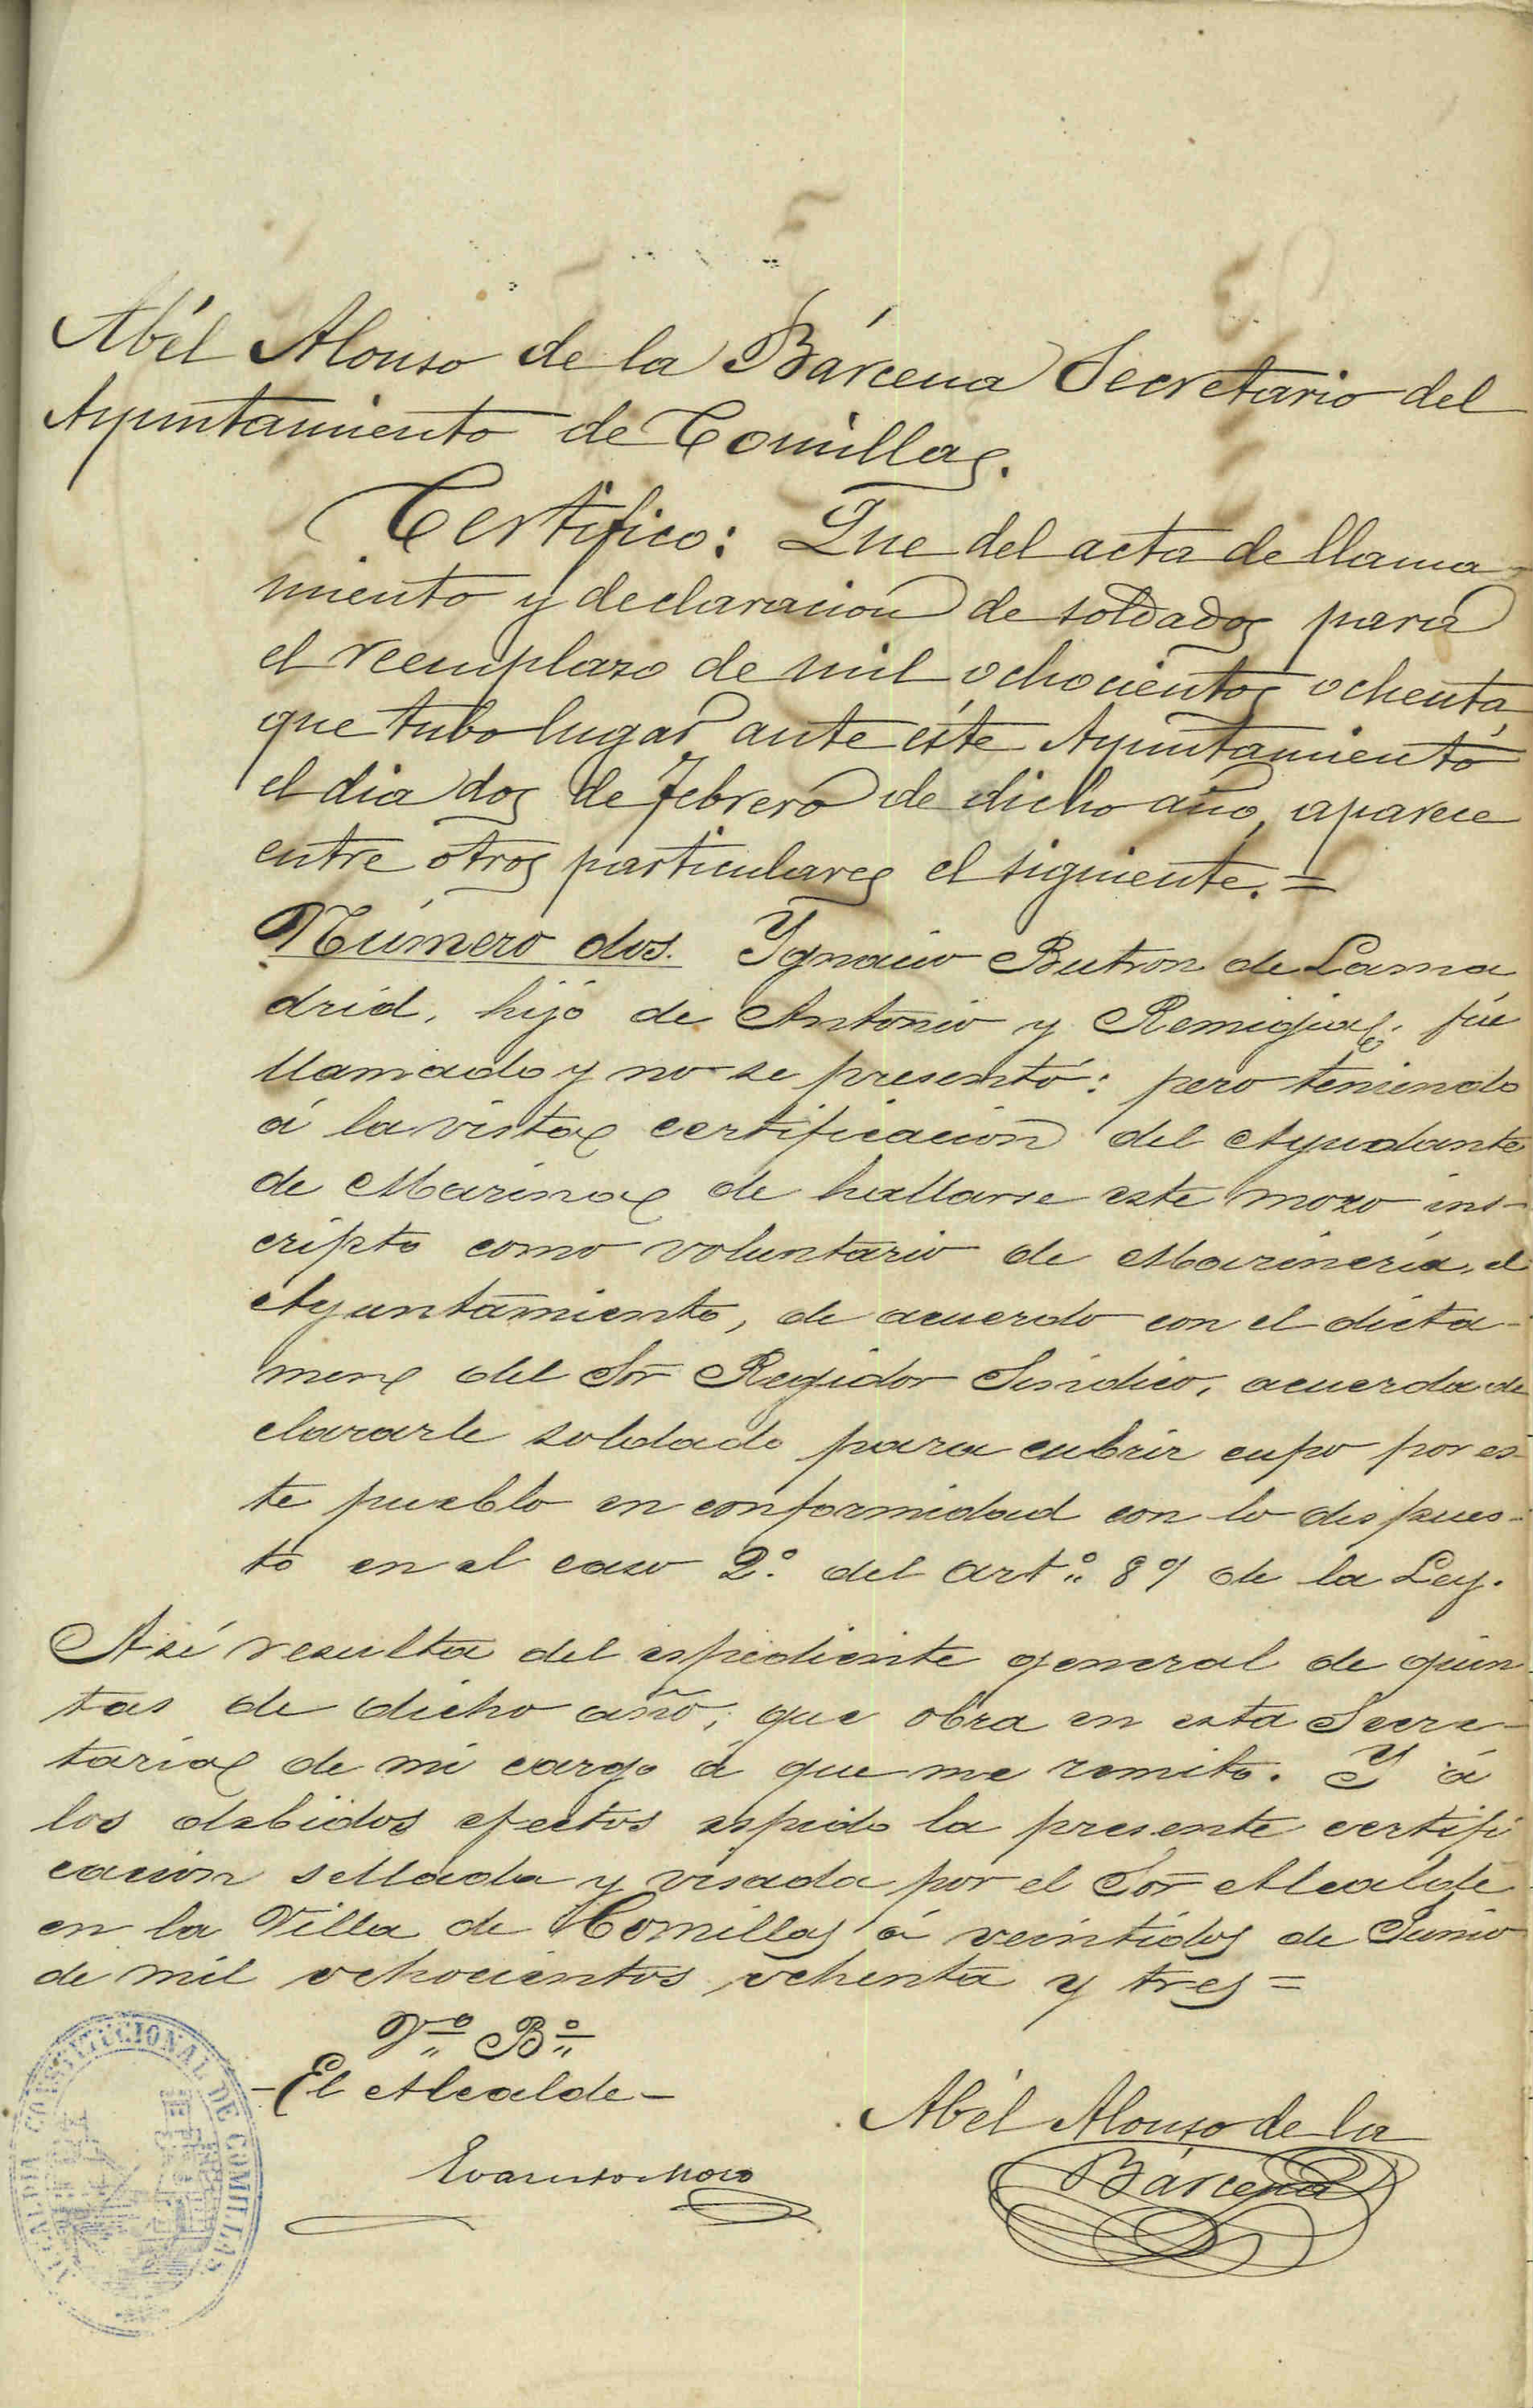 Abél Alonso de la Bárcena Secretario del
Ayuntamiento de Comillas.
Certifico: Que del acta de llama-
miento y declaracion de soldados para
el reemplazo de mil ochocientos ochenta,
que tubo lugar ante éste Ayuntamiento
el dia dos de Febrero de dicho año, aparece
entre otros particulares el siguiente. =
Número dos. Ygnacio Butron de Lama
drid, hijo de Antonio y Remigia, fue
llamado y no se presentó: pero teniendo
á la vista certificacion del Ayudante
de Marina de hallarse este mozo ins-
cripto como voluntario de Marinería, el
Ayuntamiento, de acuerdo con el dicta-
men del Sor Regidor Sindico, acuerda de
clararle soldado para cubrir cupo por es-
te pueblo en conformidad con lo dispues-
to en el caso 2º del artº 89 de la Ley.
Así resulta del espediente general de quin-
tas de dicho año, que obra en esta Secre-
taria de mi cargo á que me remito. Y á
los debidos efectos espido la presente certifi
cacion sellada y visada por el Sor Alcalde
en la Villa de Comillas á veintidos de Junio
de mil ochocientos ochenta y tres =
Vº Bº
- El Alcalde -
Evaristo Moro
Abél Alonso de la
Bárcena
ALCALDIA CONSTITUCIONAL DE COMILLAS